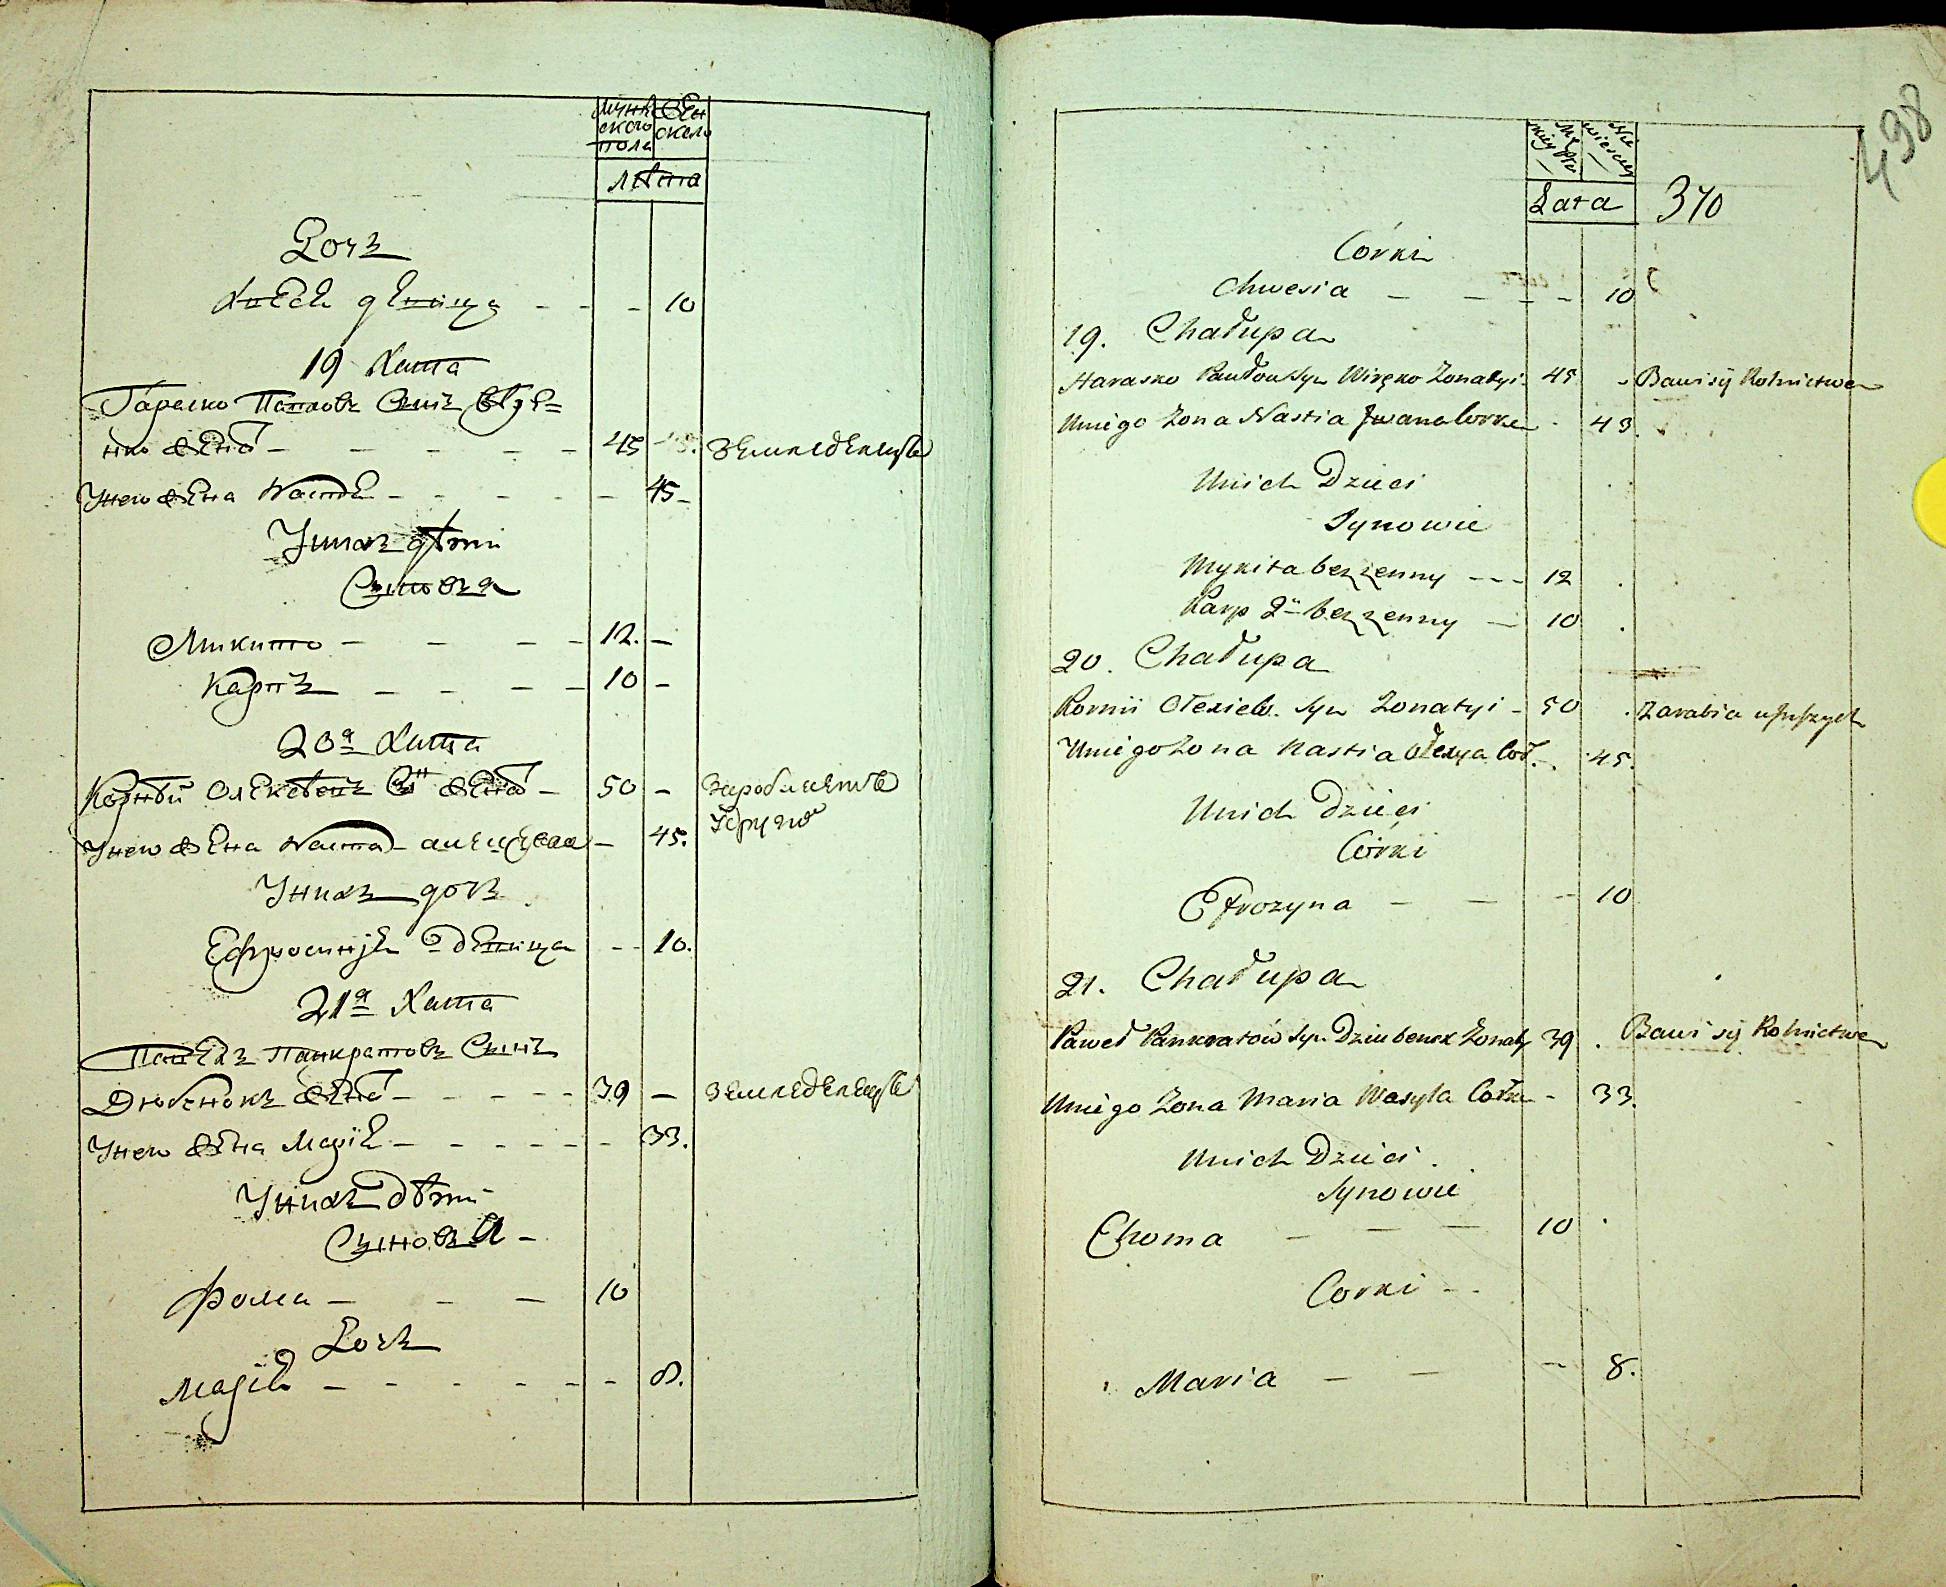 мужскаго пола женскаго
лѣта
Дочъ
Хвеся дѣвица - - - 10
19 Хата
Гараско Павловъ Сынъ
нко женатъ - - - - - 45 земледелецъ
Унего жена Настя - - - - - 45 -
Унихъ дѣти
Сыновья
Микита - - - - 12. -
Карпъ - - - - 10 -
20я Хата
Корнѣй Олексѣевъ Сынъ женатъ - 50 - заробляетъ
Унего жена Наста - 45. Удругихъ
Унихъ дочъ
Ефросинья дѣвица - - 10.
21я Хата
Павелъ Панкратовъ Сынъ
Дзюбенокъ женатъ - - - - - 39 - земледелецъ
Унего жена Марія - - - - - - 33.
Унихъ дѣти
Сыновья -
Фома - - - 10
Дочъ
Марія - - - - - - 8.
498
Męzkiey Płci Niewiesciey
Lata 370
Córki
Chwesia - - - - 10
19. Chałupa
Harasko Pawłow Syn Żonatyi 45 - Bawi się Rolnictwem
Uniego Żona Nastia Jwana Corka - 43.
Unich Dzieci
Synowie
Mykita bezżenny - - - 12 .
Karp 2ii bezżenny - 10 .
20. Chałupa
Kornii Olexiew. Syn Żonatyi - 50 . Zarabia u
Uniego Żona Nastia Olexya Coł. - 45.
Unich Dzieci
Córki
Efrozyna - - - 10
21. Chałupa
Paweł Pankratów Syn Dziubenok Żonaty 39 . Bawi się Rolnictwem
Uniego Żona Maria Wasyla Corka - 33.
Unich Dzieci .
Synowie
Choma - - - 10 .
Corki - -
Maria - - - 8.